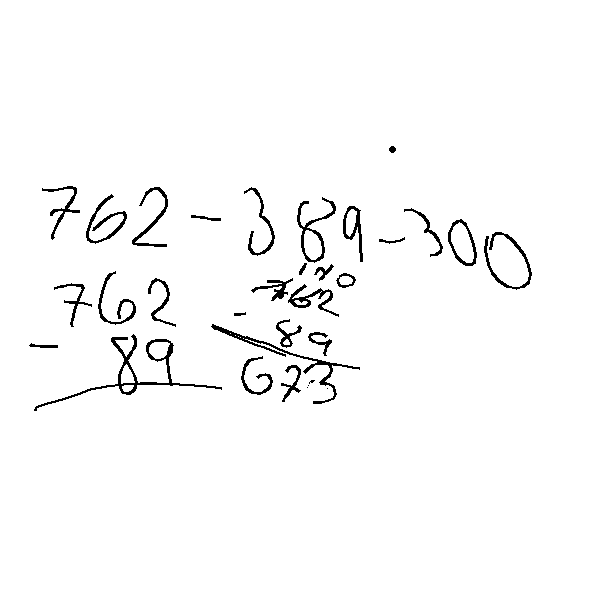 762 - 389 - 300
762
- 89
762
- 89
673